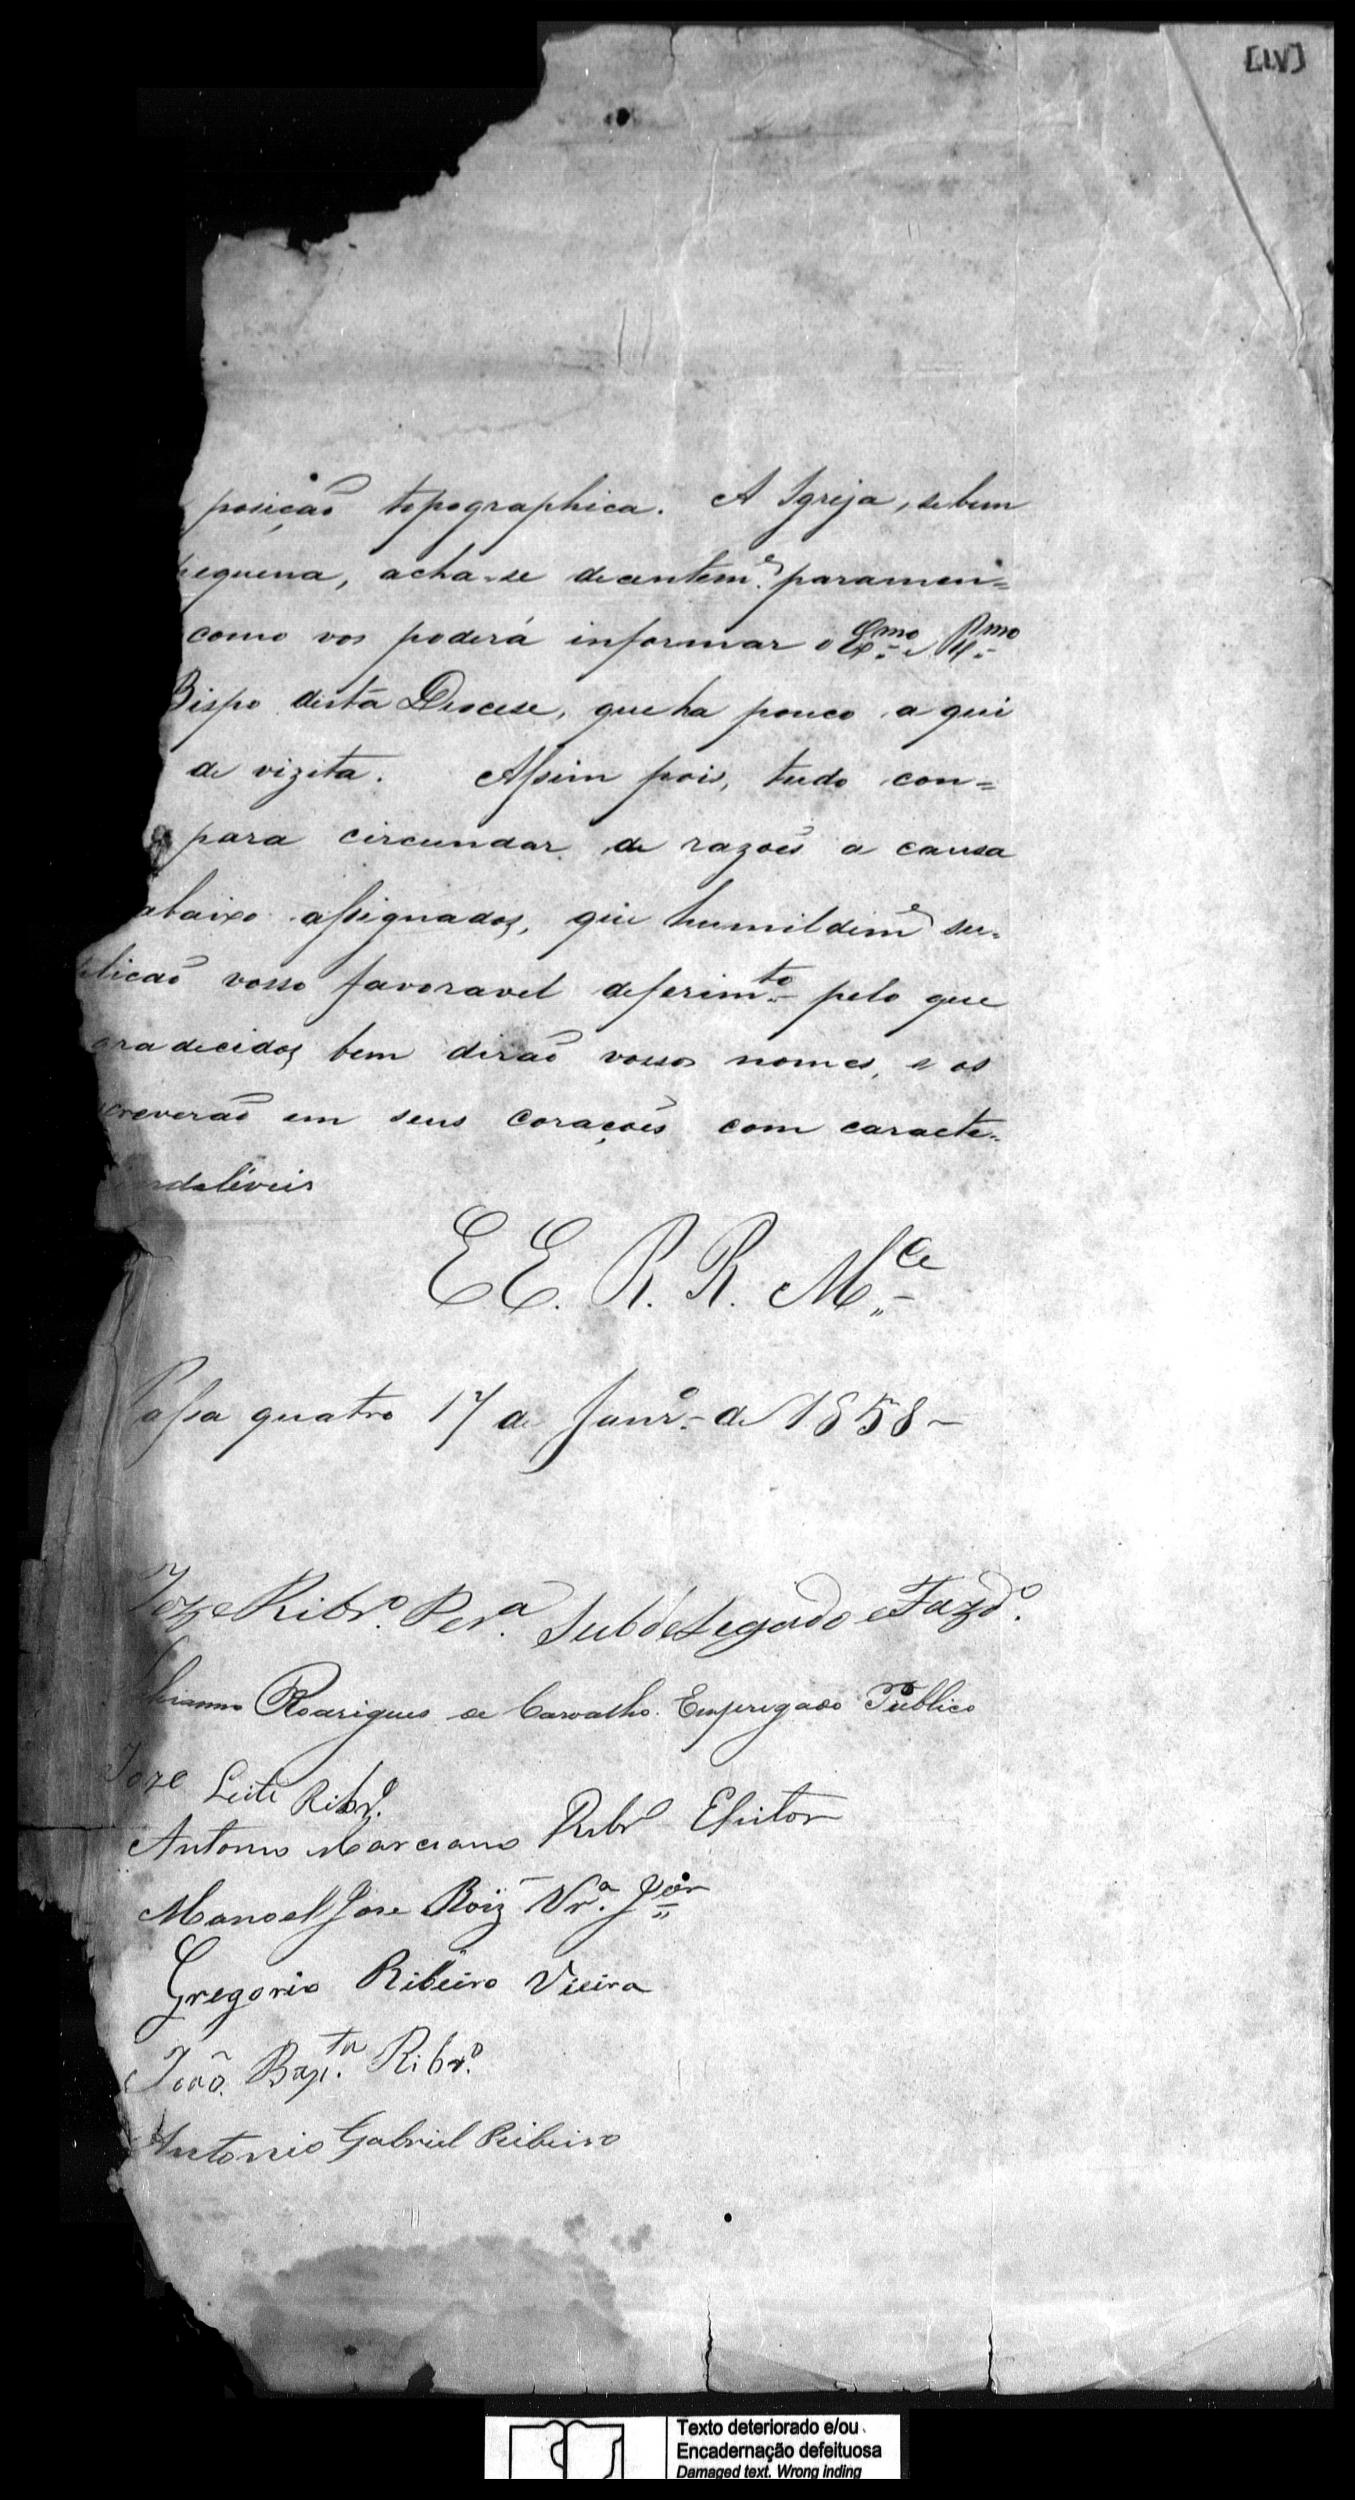 [1V]
posição topographica. A Igreja, se bem
pequena, acha-se decentem.e paramen=
como vos poderá informar o Ex.mo e R.mo
Bispo desta Diocese, que ha pouco a qui
de vizita. Assim pois, tudo con=
para circundar de razões a causa
abaixo assignados, que humildem.e su=
plicaõ vosso favoravel deferim.to pelo que
gradecidos bem diraõ vossos nomes, e os
creveraõ em seus corações com caracte=
indeléveis
E E. R. R. M.ce
Passa quatro 17 de Janr.o de 1858-
Joze Ribr.o Per.a Subdelegado e Fazd.o
Rodrigues de Carvalho. Empregado Publico
Joze Leite Ribr.o
Antonio Marciano Ribr.o Eleitor
Manoel Jose Roiz Vr.a J.or
Gregorio Ribeiro Vieira
João Bap.ta Ribr.o
Antonio Gabriel Ribeiro
Texto deteriorado e/ou
Encadernação defeituosa
Damaged text. Wrong inding